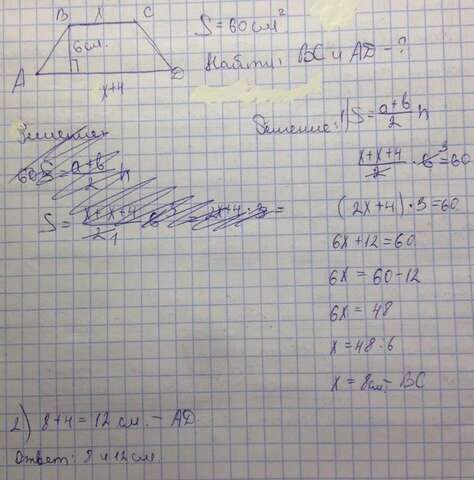 B x C
6 см.
A D
x+4
S = 60 см²
Найти: BC и AD - ?
Решение
60 S = a+b/2 h
S = x+x+4/2 1 6 3 = 2x+4·3 =
Решение: 1) S = a+b/2 h
x+x+4/2 · 6 3 = 60
(2x+4)·3=60
6x+12=60
6x = 60-12
6x = 48
x = 48:6
x = 8см - BC
2) 8+4=12 см. - AD
Ответ: 8 и 12 см.